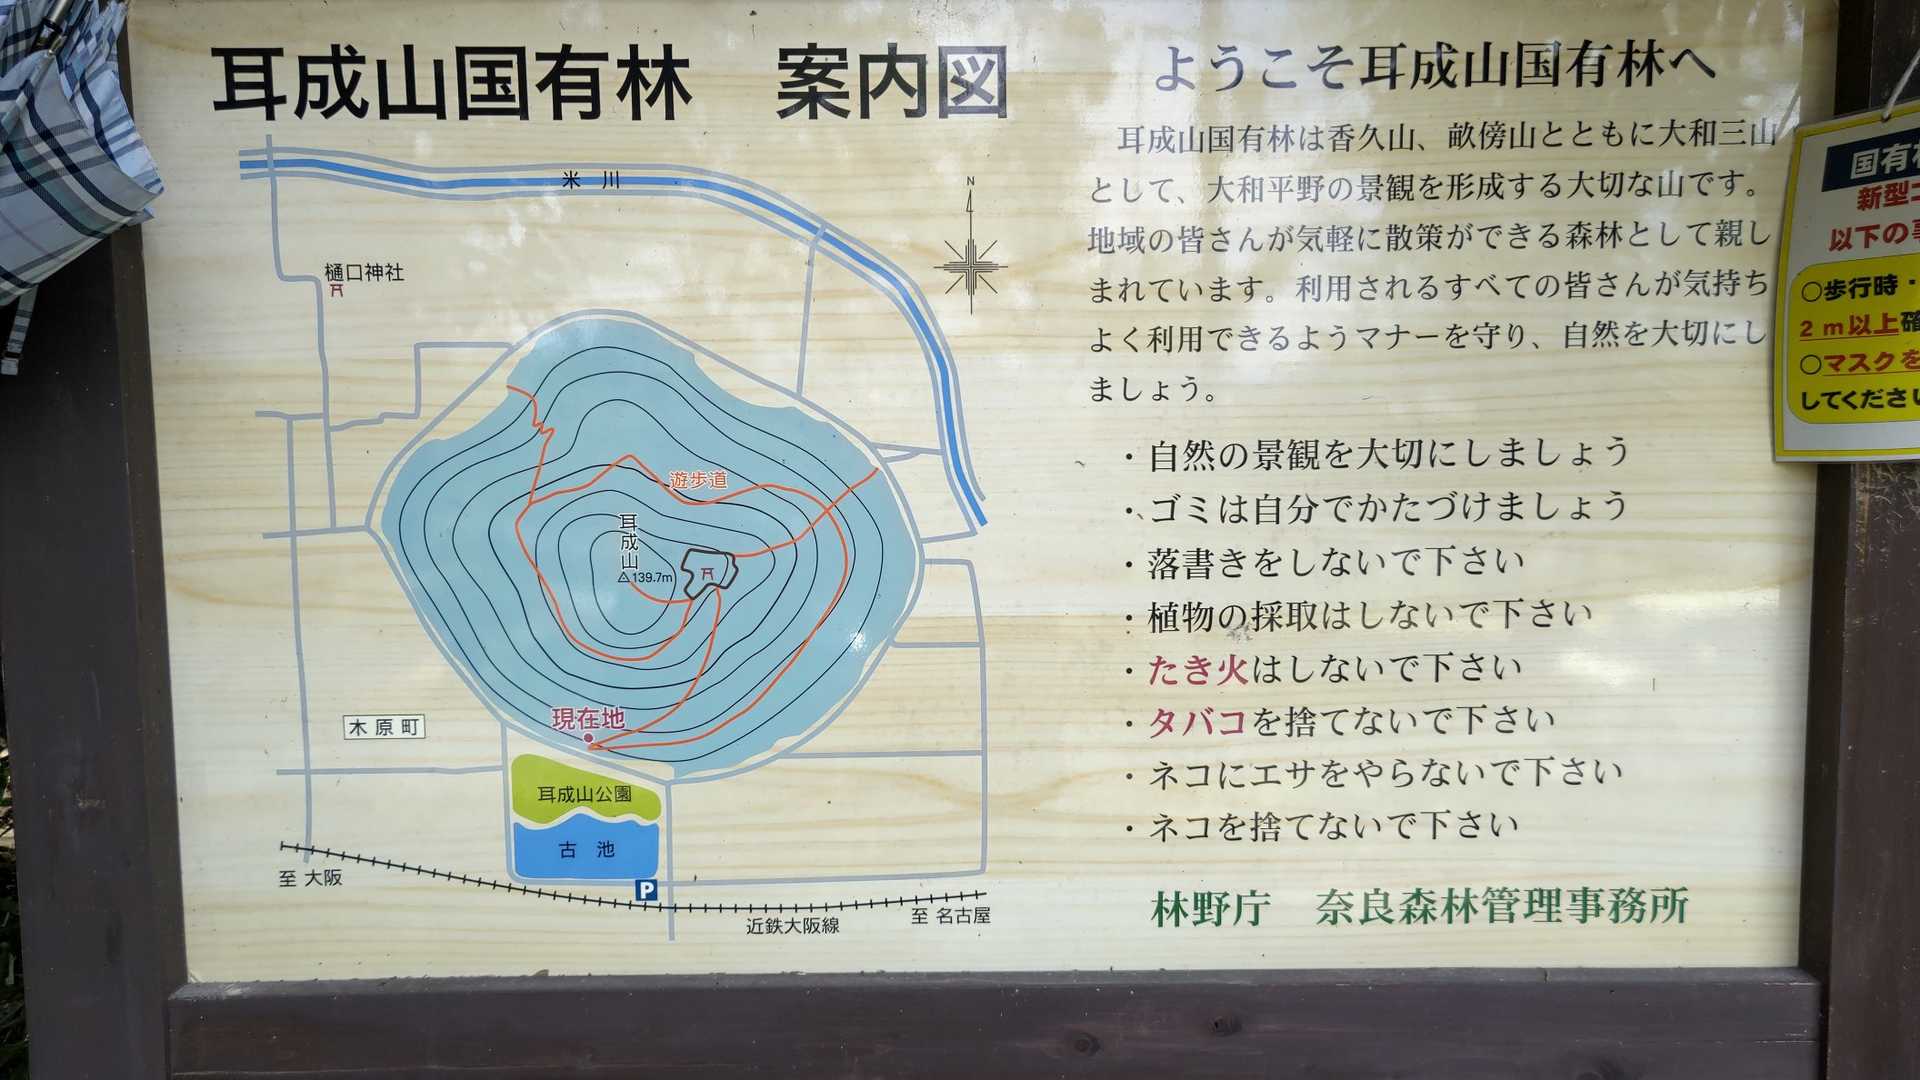 耳成山国有林　案内図
米川
N
樋口神社
遊歩道
耳成山
△139.7m
現在地
木原町
耳成山公園
古池
P
至 大阪
近鉄大阪線
至 名古屋
ようこそ耳成山国有林へ
耳成山国有林は香久山、畝傍山とともに大和三山
として、大和平野の景観を形成する大切な山です。
地域の皆さんが気軽に散策ができる森林として親し
まれています。利用されるすべての皆さんが気持ち
よく利用できるようマナーを守り、自然を大切にし
ましょう。
・自然の景観を大切にしましょう
・ゴミは自分でかたづけましょう
・落書きをしないで下さい
・植物の採取はしないで下さい
・たき火はしないで下さい
・タバコを捨てないで下さい
・ネコにエサをやらないで下さい
・ネコを捨てないで下さい
林野庁　奈良森林管理事務所
国有
新型
以下の
○歩行時・
2ｍ以上
○マスクを
してくださ